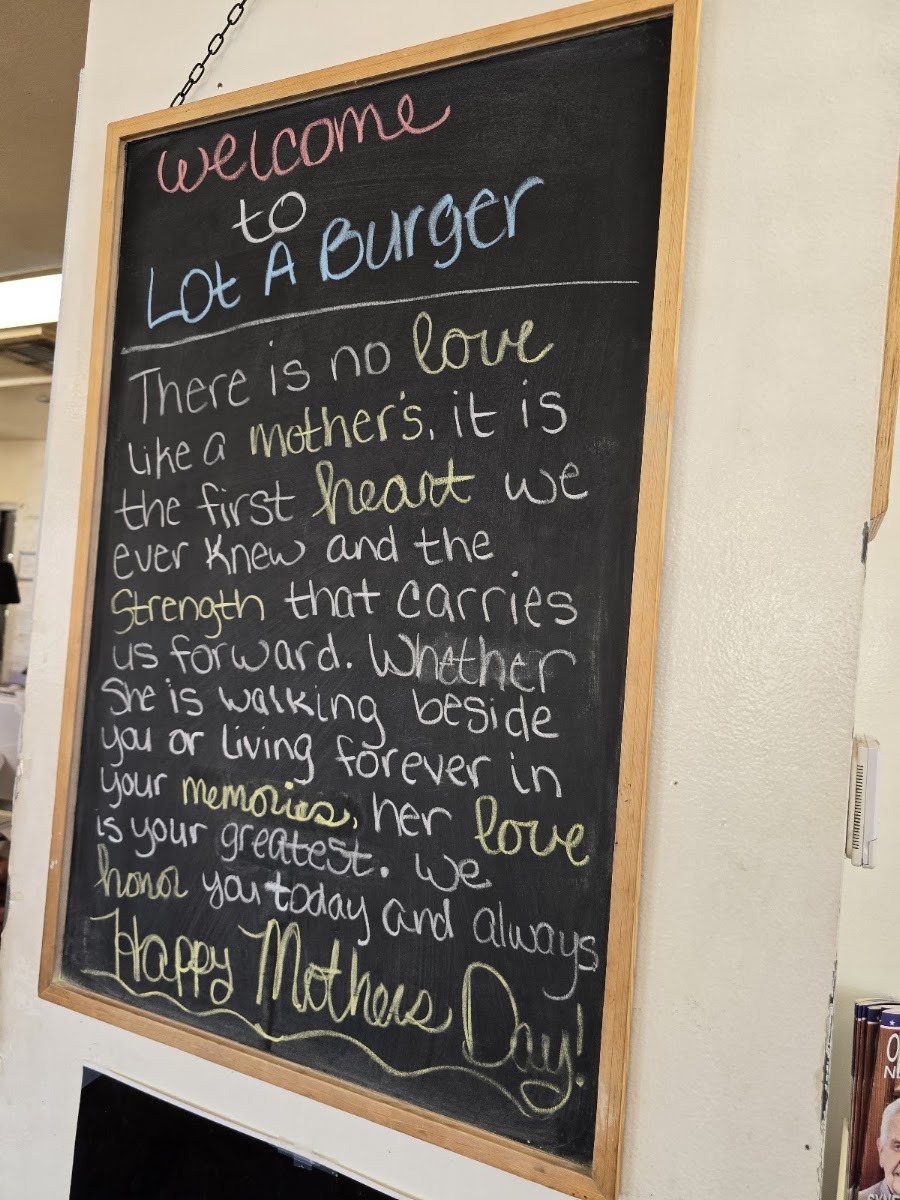 Welcome
to
Lot A Burger
There is no love
like a mother's, it is
the first heart we
ever knew and the
Strength that carries
us forward. Whether
She is walking beside
you or living forever in
your memories, her love
is your greatest. We
honor you today and always
Happy Mothers Day!